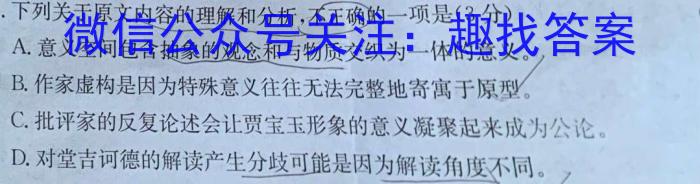 .下列关于原文内容的理解和分析,不正确的一项是(3分)
微信公众号关注：趣找答案
A.意义空间包含抽象的观念和与物质交织为一体的意义。
B.作家虚构是因为特殊意义往往无法完整地寄寓于原型。
C.批评家的反复论述会让贾宝玉形象的意义凝聚起来成为公论。
D.对堂吉诃德的解读产生分歧可能是因为解读角度不同。